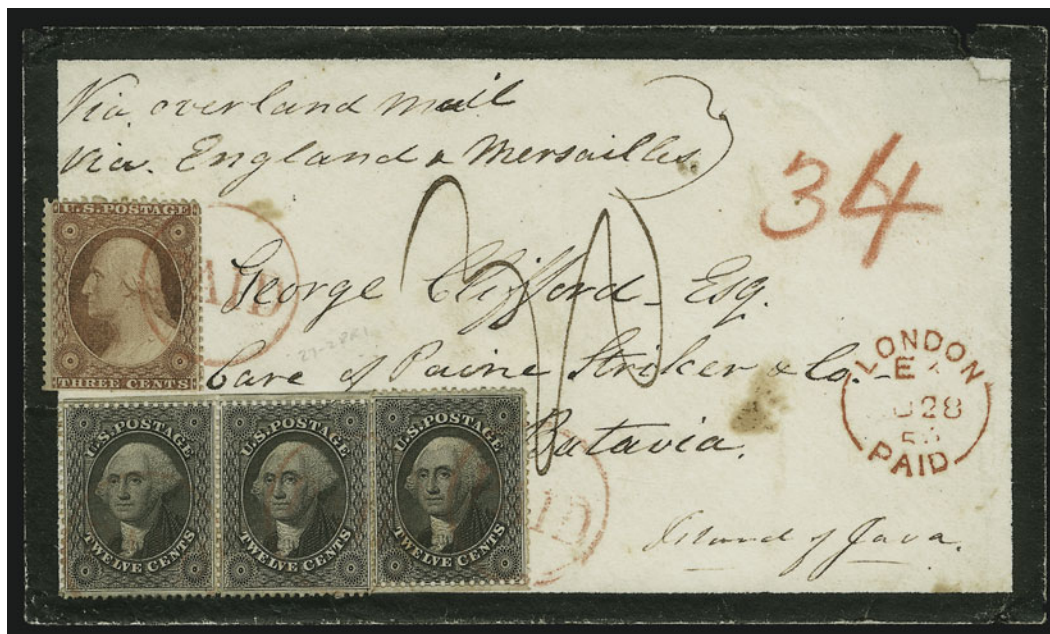 Via overland mail
Via. England & Mersailles
34
U.S. POSTAGE
THREE CENTS
PAID
George Clifford Esq.
Care of Paine Striker & Co.
Batavia.
Island of Java.
LONDON
E
28
PAID
U.S. POSTAGE
TWELVE CENTS
U.S. POSTAGE
TWELVE CENTS
U.S. POSTAGE
TWELVE CENTS